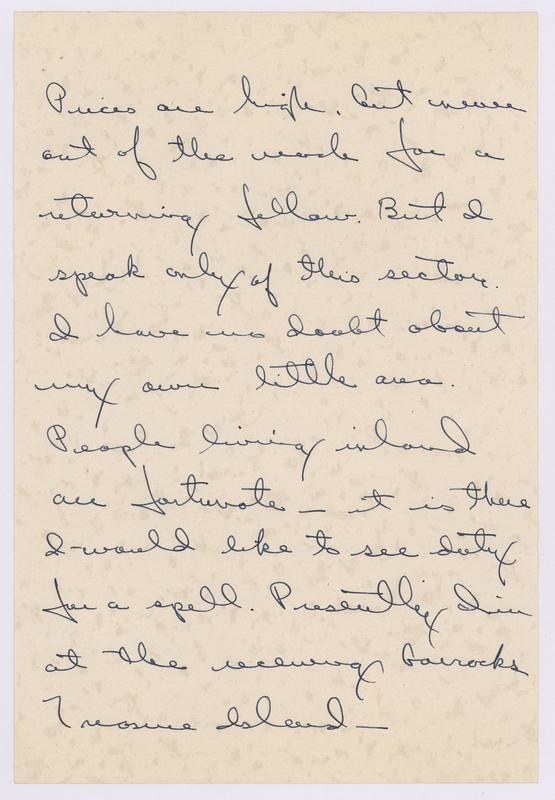 Prices are high, but never
out of the mode for a
returning fellow. But I
speak only of this sector.
I have no doubt about
my own little area.
People living inland
are fortunate — it is there
I would like to see duty
for a spell. Presently I'm
at the receiving barracks
Treasure Island —